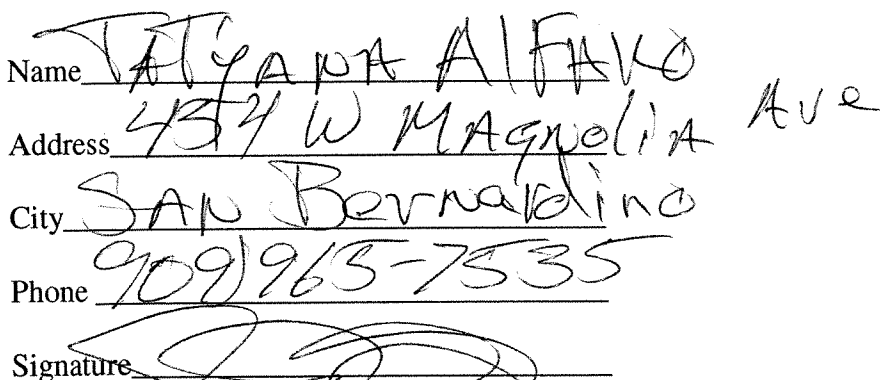 Name TATYANA AlFARO
Address 454 W MAgnoliA Ave
City SAN Bernardino
Phone 909) 965-7535
Signature